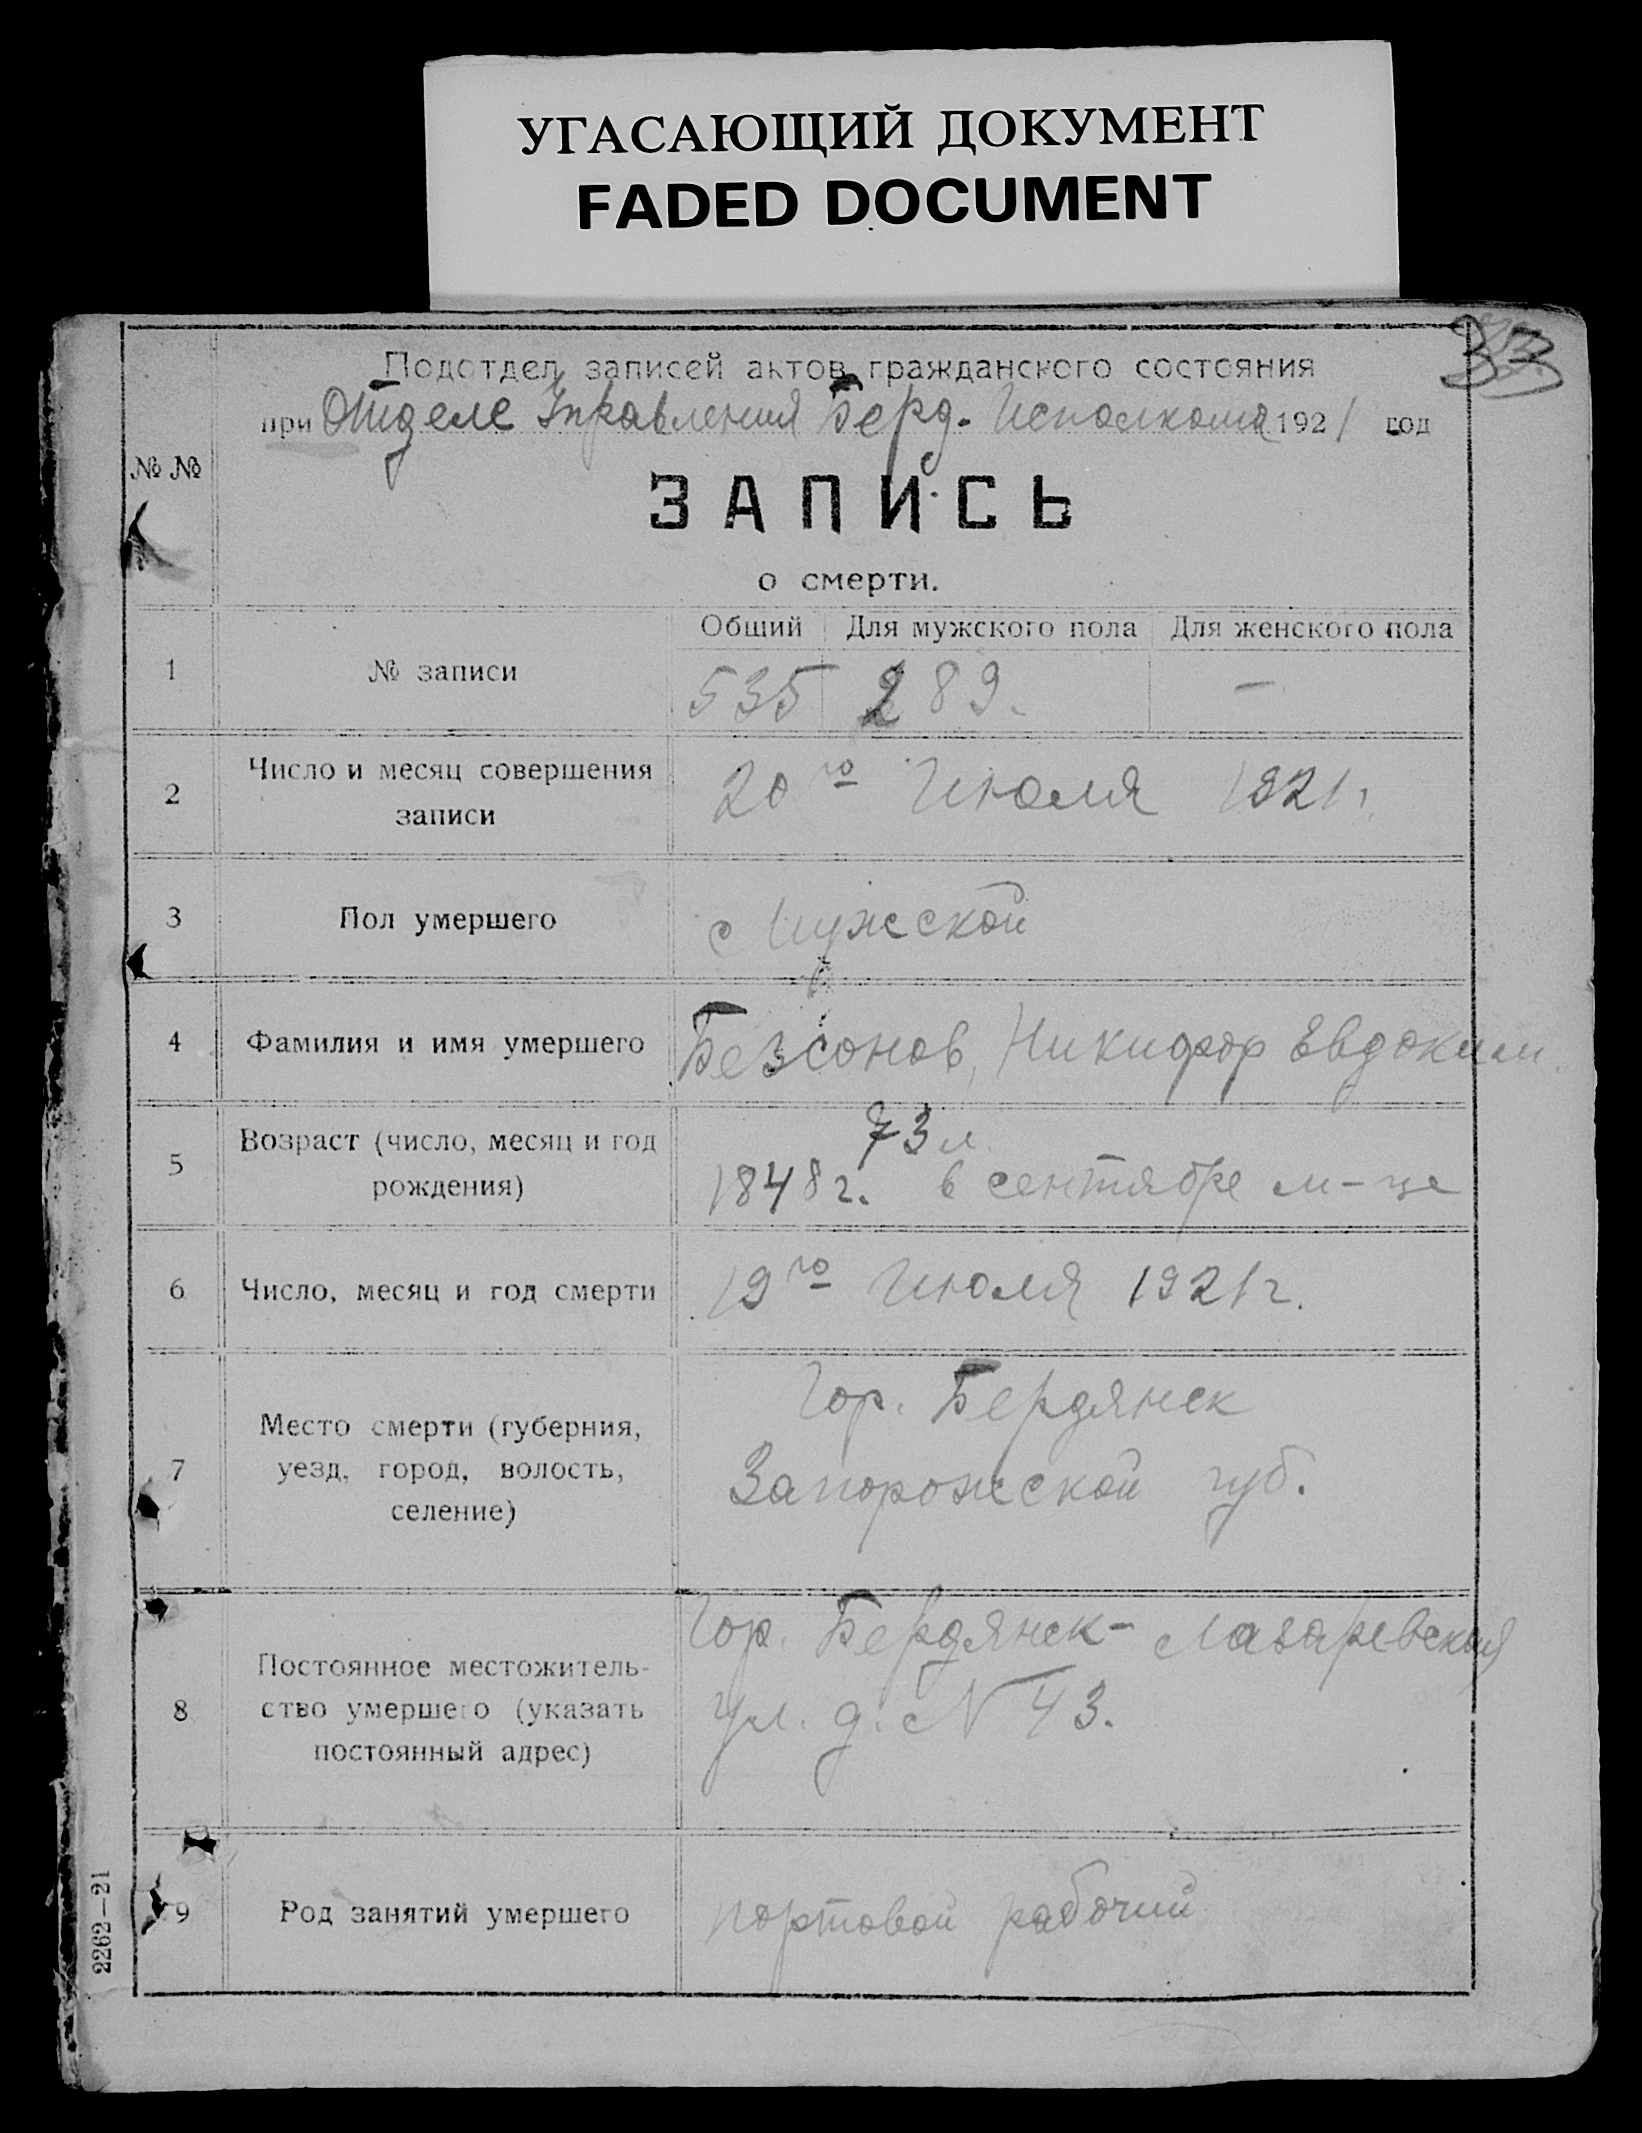 УГАСАЮЩИЙ ДОКУМЕНТ
FADED DOCUMENT
33
Подотдел записей актов гражданского состояния
при Отделе Управления Берд. Исполкома 1921 год
№ №
ЗАПИСЬ
о смерти.
Общий Для мужского пола Для женского пола
1 № записи 535 289. —
2 Число и месяц совершения
записи
20го Июля 1921г.
3 Пол умершего Мужской
4 Фамилия и имя умершего Безсонов, Никифор Евдоким
5 Возраст (число, месяц и год
рождения)
73 л.
1848г. в сентябре м-це
6 Число, месяц и год смерти 19го Июля 1921г.
7 Место смерти (губерния,
уезд, город, волость,
селение)
Гор. Бердянск
Запорожской губ.
8 Постоянное местожитель-
ство умершего (указать
постоянный адрес)
Гор. Бердянск - Лазаревская
ул. д. № 43.
9 Род занятий умершего портовой рабочий
2262—21